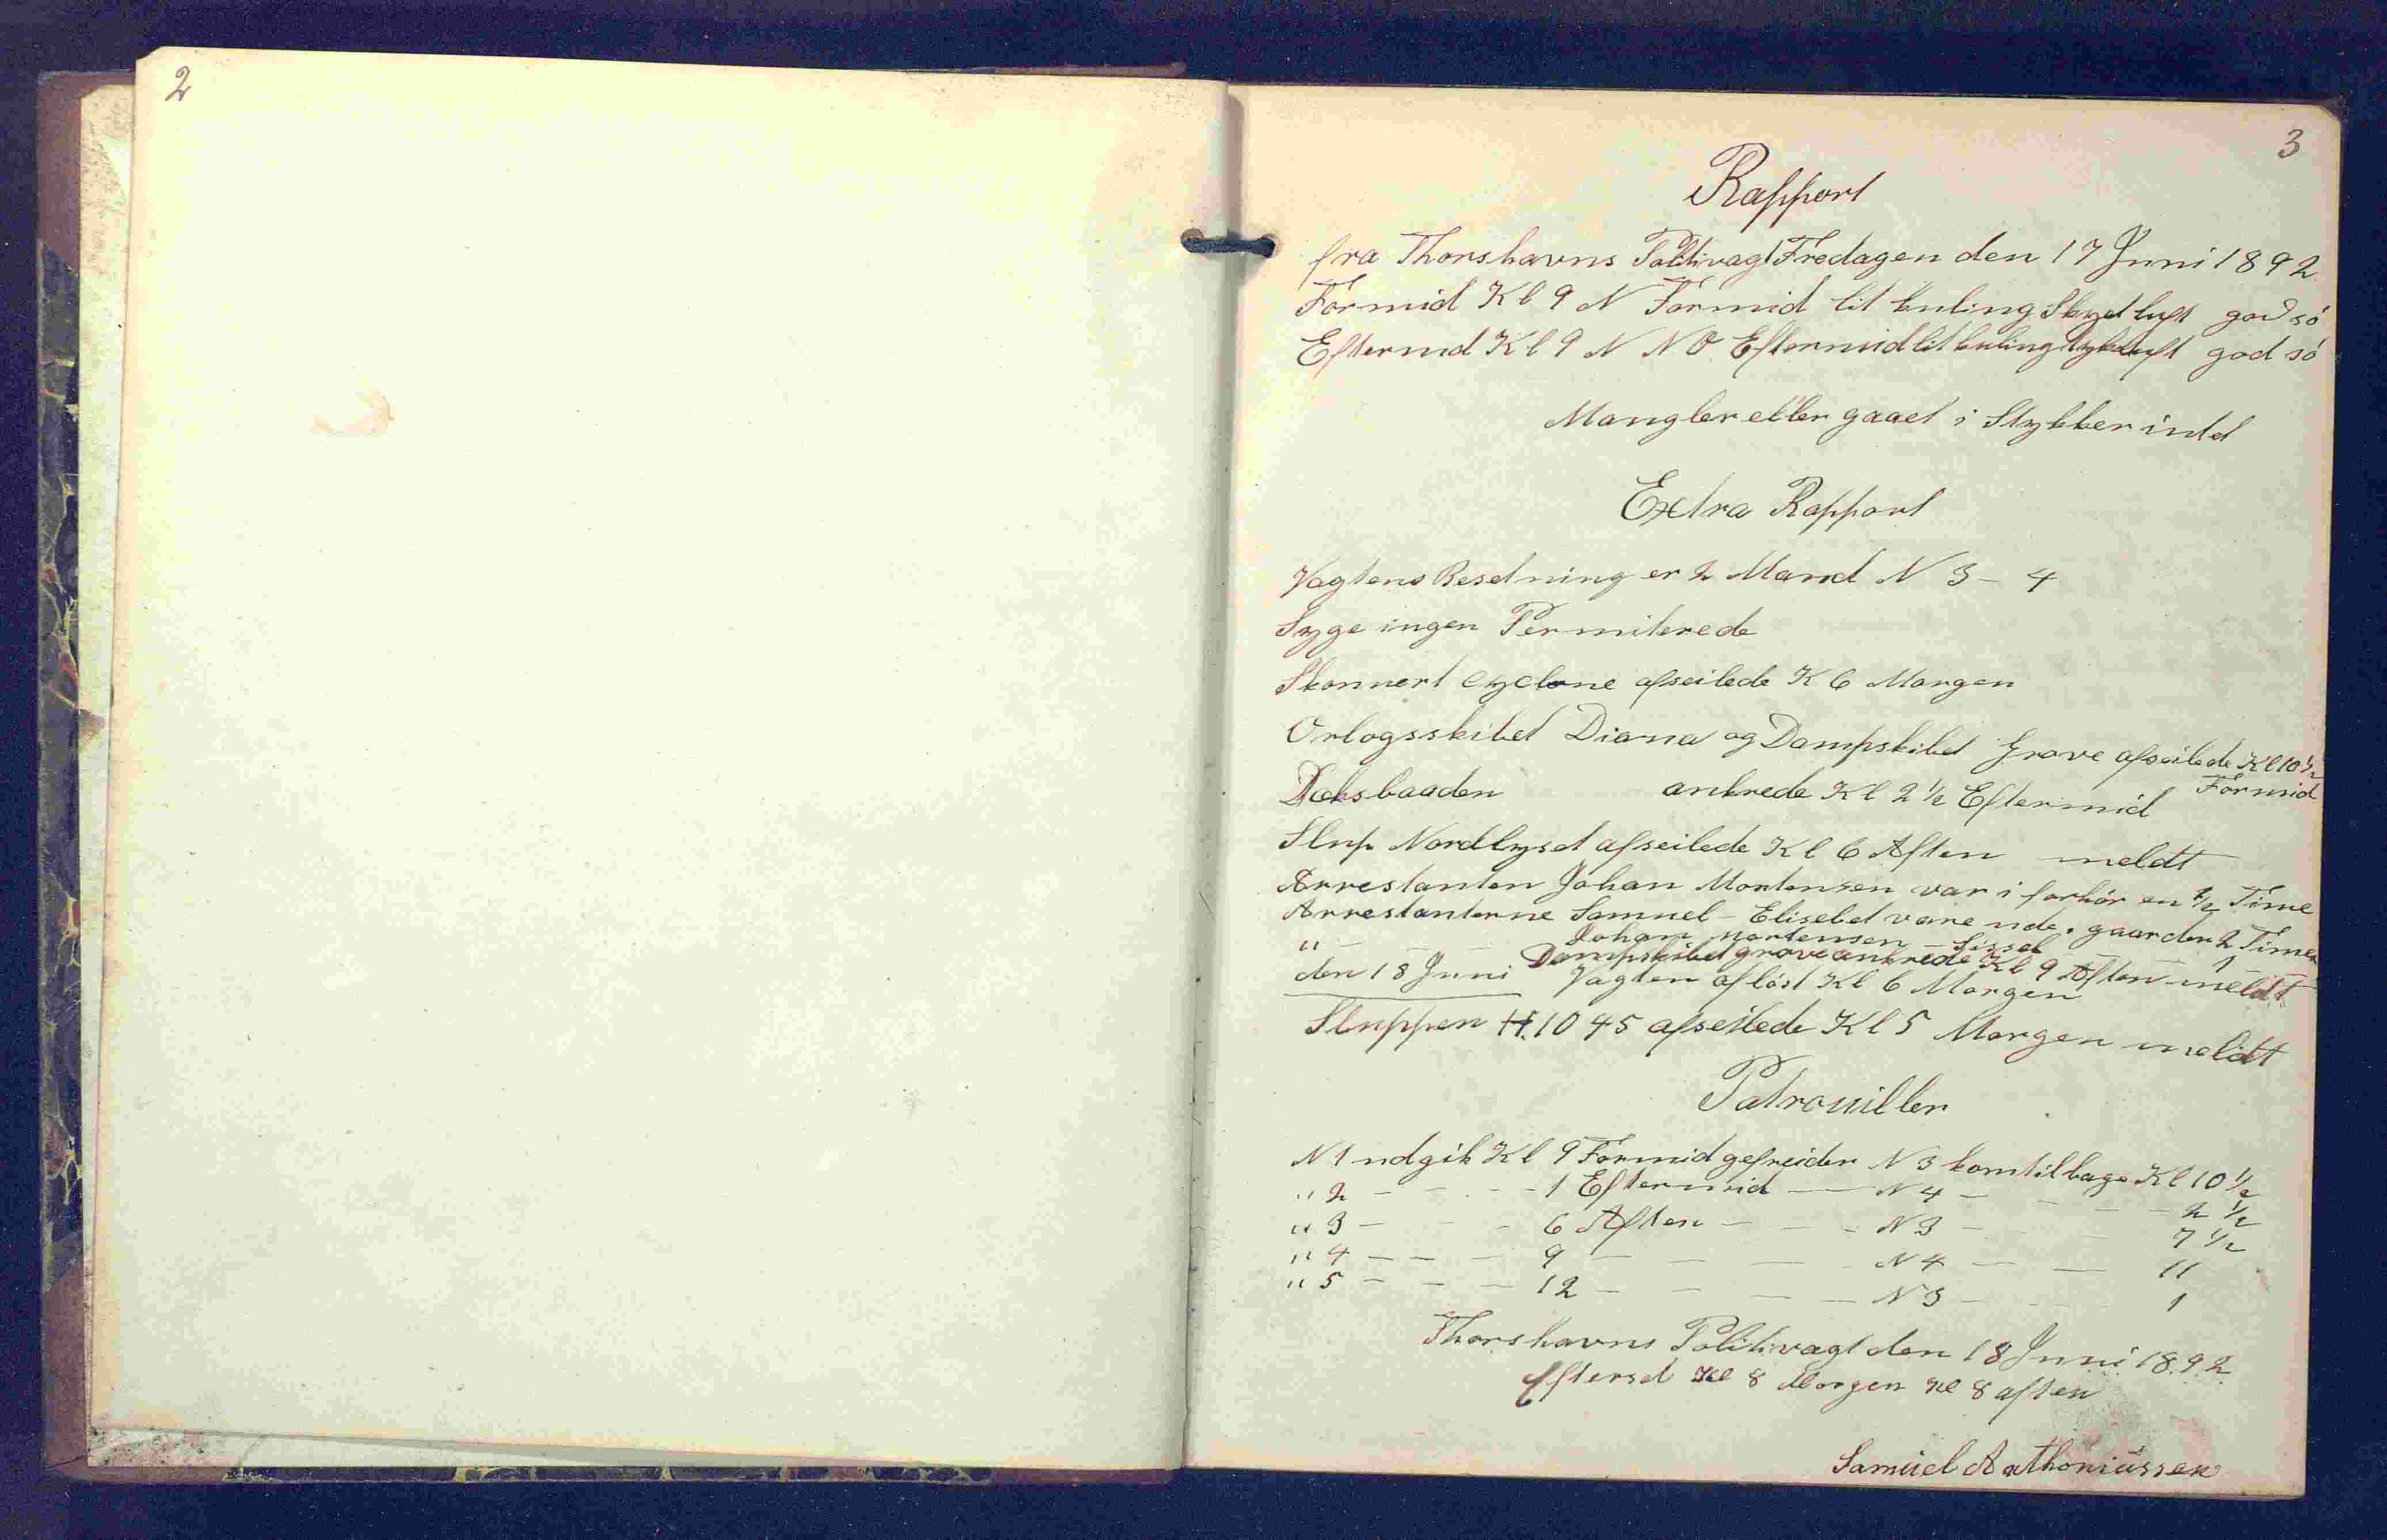 2
3
Rapport
fra Thorshavns Politivagt Fredagen den 17 Juni 1892
Formid Kl 9 N Formid lit kuling Skyet luft god sö
Eftermd Kl 9 N N O Eftermid lit kuling tyk luft god sö
Mangler eller gaaet i Stykker intet
Extra Rapport
Vagtens Besetning er 2 Mand N 3 - 4
Syge ingen Permiterede
Skonnert cyclone afseilede K 6 Morgen
Orlogsskibet Diana og Dampskibet Grove afseilede Kl 10 1/2
Formid
Dæksbaaden ankrede Kl 2 1/2 Eftermid
Slup Nordlyset afseilede Kl 6 Aften meldt
Arrestanten Johan Mortensen var i forhör en 1/2 Time
Arrestanterne Samuel - Elisebet vare ude i gaarden 2 Timer
" - Johan Mortensen - Sissel - 1 -
Dampskibet grove ankrede Kl 9 Aften meldt
den 18 Juni Vagten aflöst Kl 6 Morgen
Sluppen H. 1045 afseilede Kl 5 Morgen meldt
Patrouiller
N 1 udgik Kl 9 Formid gefreider N 3 kom tilbage Kl 10 1/2
" 2 - - - 1 Eftermid - N 4 - - - 2 1/2
" 3 - - - 6 Aften - - - N 3 - - 7 1/2
" 4 - - - 9 - - - N 4 - - 11
" 5 - - - 12 - - - N 3 - - 1
Thorshavns Politivagt den 18 Juni 1892
Efterset Kl 8 Morgen Kl 8 aften
Samuel Anthoniussen